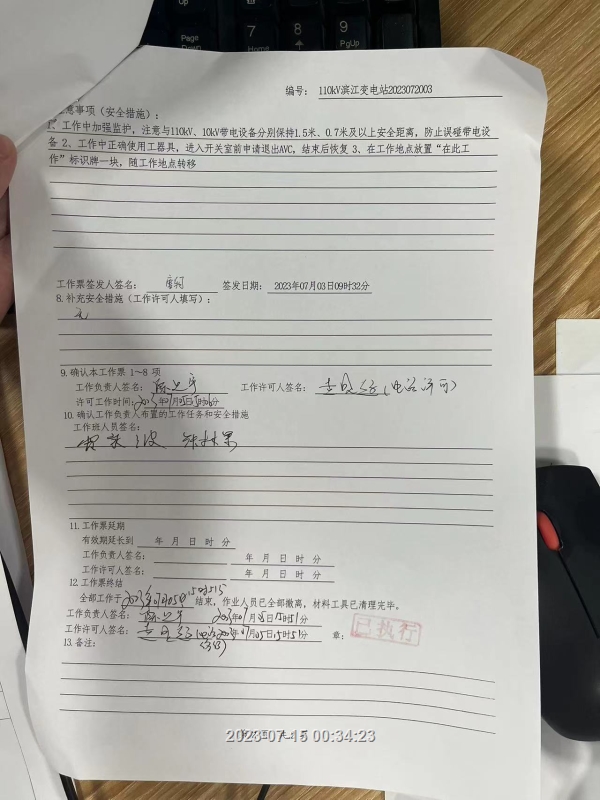 Page
Down
7
Home
8
9
PgUp
编号: 110kV滨江变电站2023072003
意事项(安全措施):
1、工作中加强监护,注意与110kV、10kV带电设备分别保持1.5米、0.7米及以上安全距离,防止误碰带电设
备 2、工作中正确使用工器具,进入开关室前申请退出AVC,结束后恢复 3、在工作地点放置“在此工
作”标识牌一块,随工作地点转移
工作票签发人签名: 签发日期: 2023年07月03日09时32分
8.补充安全措施(工作许可人填写):
无
9.确认本工作票 1~8 项
工作负责人签名: 工作许可人签名: (电话许可)
许可工作时间: 2023年07月05日 时 分
10.确认工作负责人布置的工作任务和安全措施
工作班人员签名:
11.工作票延期
有效期延长到 年 月 日 时 分
工作负责人签名: 年 月 日 时 分
工作许可人签名: 年 月 日 时 分
12.工作票终结
全部工作于 结束,作业人员已全部撤离,材料工具已清理完毕。
工作负责人签名: 2023年07月05日15时51分
工作许可人签名: 2023年07月05日15时51分 章: 已执行
13.备注:
2023-07-15 00:34:23